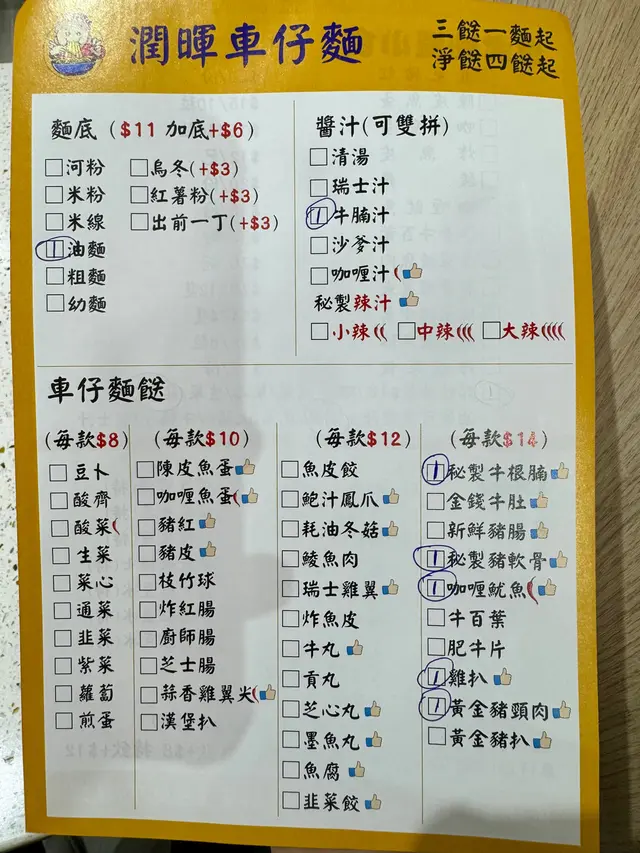 潤暉車仔麵
三餸一麵起
淨餸四餸起
麵底 ($11 加底+$6)
河粉 烏冬(+$3)
米粉 紅薯粉(+$3)
米線 出前一丁(+$3)
1 油麵
粗麵
幼麵
醬汁(可雙拼)
清湯
瑞士汁
1 牛腩汁
沙爹汁
咖喱汁
秘製辣汁
小辣 中辣 大辣
車仔麵餸
(每款$8)
豆卜
酸齋
酸菜
生菜
菜心
通菜
韭菜
紫菜
蘿蔔
煎蛋
(每款$10)
陳皮魚蛋
咖喱魚蛋
豬紅
豬皮
枝竹球
炸紅腸
廚師腸
芝士腸
蒜香雞翼尖
漢堡扒
(每款$12)
魚皮餃
鮑汁鳳爪
耗油冬菇
鯪魚肉
瑞士雞翼
炸魚皮
牛丸
貢丸
芝心丸
墨魚丸
魚腐
韭菜餃
(每款$14)
1 秘製牛根腩
金錢牛肚
新鮮豬腸
1 秘製豬軟骨
1 咖喱魷魚
牛百葉
肥牛片
1 雞扒
1 黃金豬頸肉
黃金豬扒